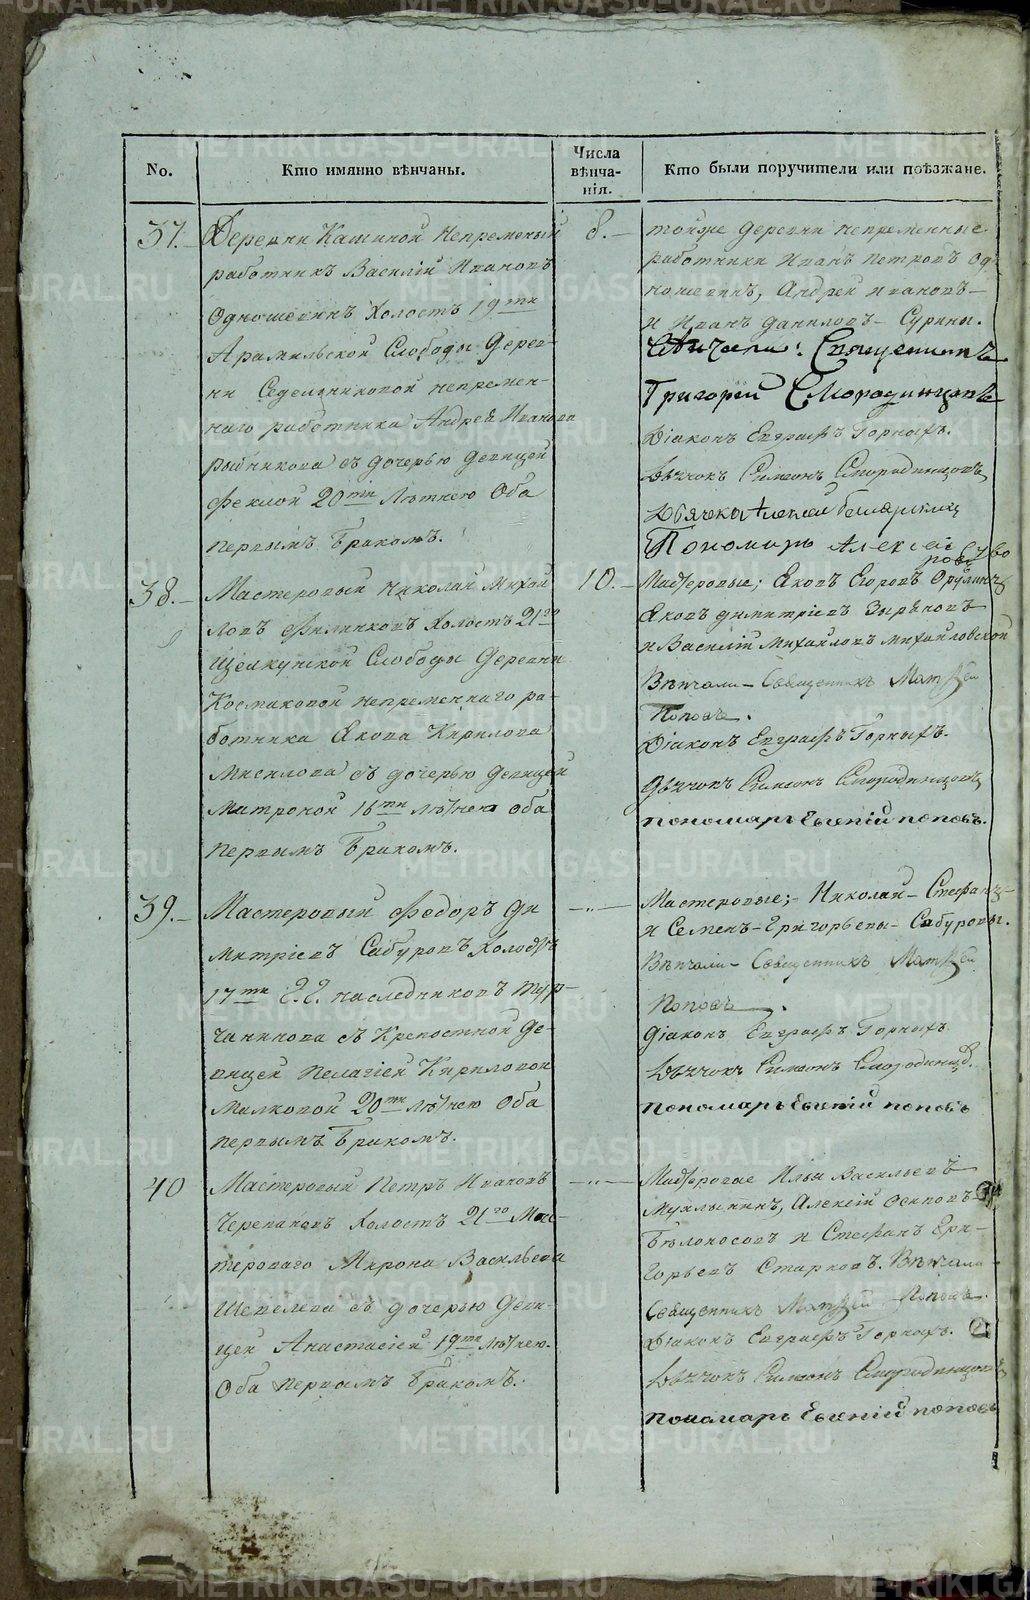 No.
Кто имянно вѣнчаны.
Числа
вѣнча-
нія.
Кто были поручители или поѣзжане.
37.
Деревни Кашиной непременный
работникъ Василій Ивановъ
Одношевинъ холостъ 19ти
Арамильской Слободы Дерев-
ни Седельниковой непремен-
наго работника Андрея Иванова
с дочерью девицей
Феклой 20ти лѣтнею Оба
первымъ бракомъ.
8.
тойже деревни непременные
работники Иванъ Петровъ Од-
ношевинъ, Андрей Ивановъ
и Иванъ Даниловъ Сурины.
Вѣнчали: Священникъ
Григорій Смородинцовъ
Діаконъ Евграфъ Горныхъ.
Дьячокъ Симеонъ Смородинцовъ
Дьячокъ Алексей
Пономарь Алексей
38.
Мастеровый Николай Михай
ловъ Филинковъ холостъ 21го
Щелкунской Слободы Деревни
Космаковой непременнаго ра-
ботника Якова Кирилова
Мисилова съ дочерью девицей
Матроной 16ти лѣтнею оба
первымъ бракомъ.
10.
Мастеровые; Яковъ Егоровъ
Яковъ Димитріевъ Зыряновъ
и Василій Михайловъ Михайловской
Вѣнчали Священникъ Матѳей
Поповъ.
Діаконъ Евграфъ Горныхъ.
Дьячокъ Симеонъ Смородинцовъ
пономарь Евгеній поповъ.
39.
Мастеровый Федоръ Ди
митріевъ Сабуровъ холостъ
17ти Г.Г. наследниковъ Тур-
чанинова съ крепостной де-
вицей Пелагіей Кириловой
Малковой 20ти лѣтнею Оба
первымъ бракомъ.
Мастеровые; Николай Стефанъ
и Семенъ Григорьевы Сабуровы.
Вѣнчали Священникъ Матѳей
Поповъ.
Діаконъ Евграфъ Горныхъ
Дьячокъ Симеонъ Смородинцов.
пономарь Евгеній поповъ
40
Мастеровый Петръ Ивановъ
Черепановъ холостъ 21го Мас-
тероваго Мирона Васильева
Шепелева съ дочерью деви-
цей Анастасіей 19ти лѣтнею.
Оба первымъ бракомъ.
Мастеровые Илья Васильевъ
Мухлынинъ, Алексій Осиповъ
Бѣлоносовъ и Стефанъ Гри-
горьевъ Старковъ. Вѣнчали
Священникъ Матѳей Поповъ.
Діаконъ Евграфъ Горныхъ.
Дьячокъ Симеонъ Смородинцовъ
пономарь Евгеній поповъ
METRIKI.GASO-URAL.RU